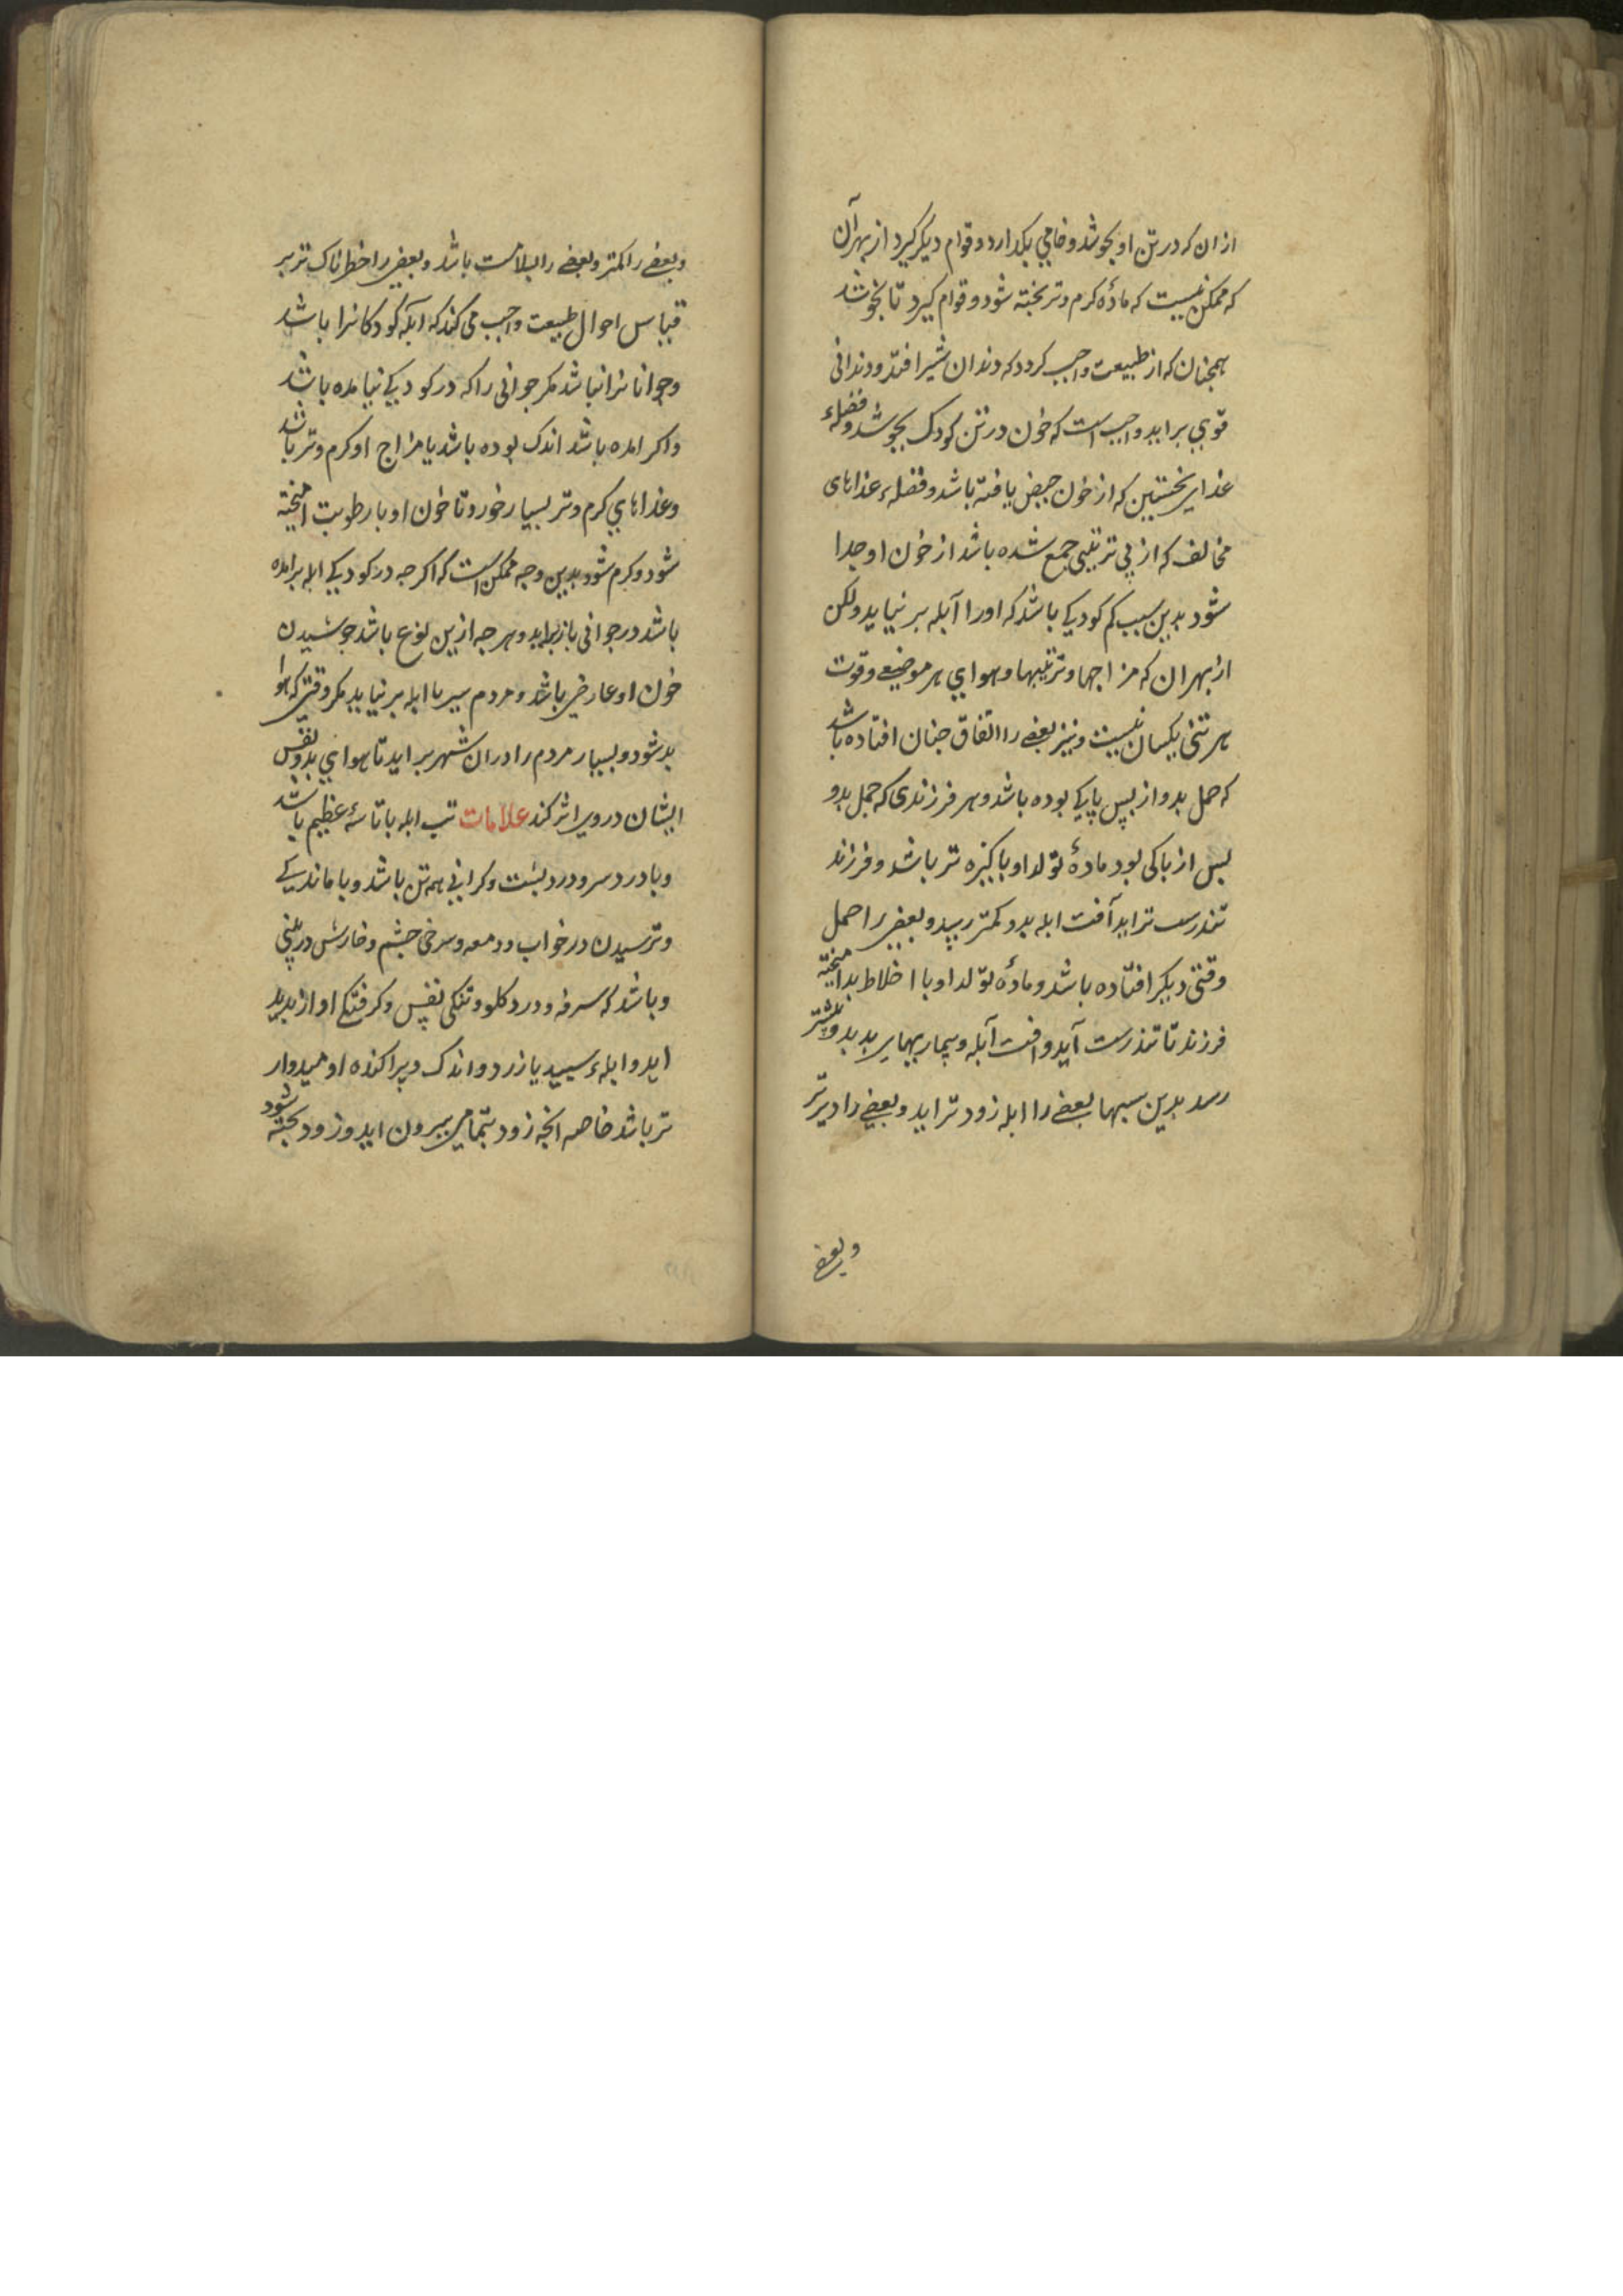 ازان که در تن او بجوشد و خامی بکدارد و قوام دیکر کیرد از بهر آن
که ممکن نیست که مادهٔ کرم و تر بخته شود و قوام کیرد تا بخوشد
همجنان که از طبیعت واجب کردد که دندان شیر افتد و دندانی
قوی برآید واجب است که خون در تن کودک بجوشد و فضلهء
غذای نخستین که از خون حیض یافته باشد و فضلهء غذاهای
مخالف که از بی ترتیبی جمع شده باشد از خون او جدا
شود بدین سبب کم کودکی باشد که اورا آبله بر نیاید ولکن
ازبهر ان که مزاجها و ترتیبها و هوای هر موضعی و قوت
هر تنی یکسان نیست و نیز بعضی را اتفاق جنان افتاده باشد
که حمل بدو از پس پاکی بوده باشد و هر فرزندی که حمل بدو
بس از باکی بود مادهٔ تولد او باکیزه تر باشد و فرزند
تندرست تر اید آفت ابله بدو کمتر رسد و بعضی را حمل
وقتی دیکر افتاده باشد و مادهٔ تولد او با اخلاط بد امیخته
فرزند نا تندرست آید و افت آبله و بیماریهای بد بدو بیشتر
رسد بدین سببها بعضی را ابله زودتر اید و بعضی را دیرتر
وبعضی
وبعضی را کمتر وبعضی را بسلامت باشد وبعضی را خطرناک تر بر
قیاس احوال طبیعت واجب می کند که آبله کودکانرا باشد
وجوانانرا نباشد مکر جوانی را که در کودکی نیامده باشد
واکر امده باشد اندک بوده باشد یا مزاج او کرم وتر باشد
وغذاهای کرم وتر بسیار خورد تا خون او با رطوبت امیخته
شود وکرم شود بدین وجه ممکن است که اکرجه در کودکی ابله برامده
باشد درجوانی باز براید وهرجه ازین نوع باشد جوشیدن
خون او عارضی باشد ومردم بیر را ابله بر نیاید مکر وقتی که هوا
بد شود وبسیار مردم را دران شهر براید تا هوای بد ونفس
ایشان دروی اثر کند علامات تب ابله با تاسهٔ عظیم باشد
وبا درد سر ودرد بشت وکرانی همه تن باشد وبا ماندکی
وترسیدن در خواب ودمعه وسرخی جشم وخارش در بینی
وباشد که سرفه ودرد کلو وتنکی نفس وکرفتکی اواز بدید
اید وابلهء سپید یا زرد واندک وپراکنده اومیدوار
تر باشد خاصه انجه زود بتمامی بیرون اید وزود بخته شود